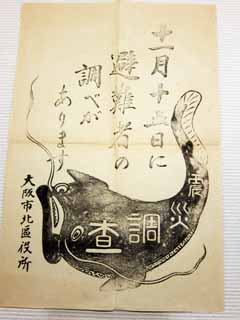 十一月十五日に
避難者の
調べが
あります
震災
調査
大阪市北區役所